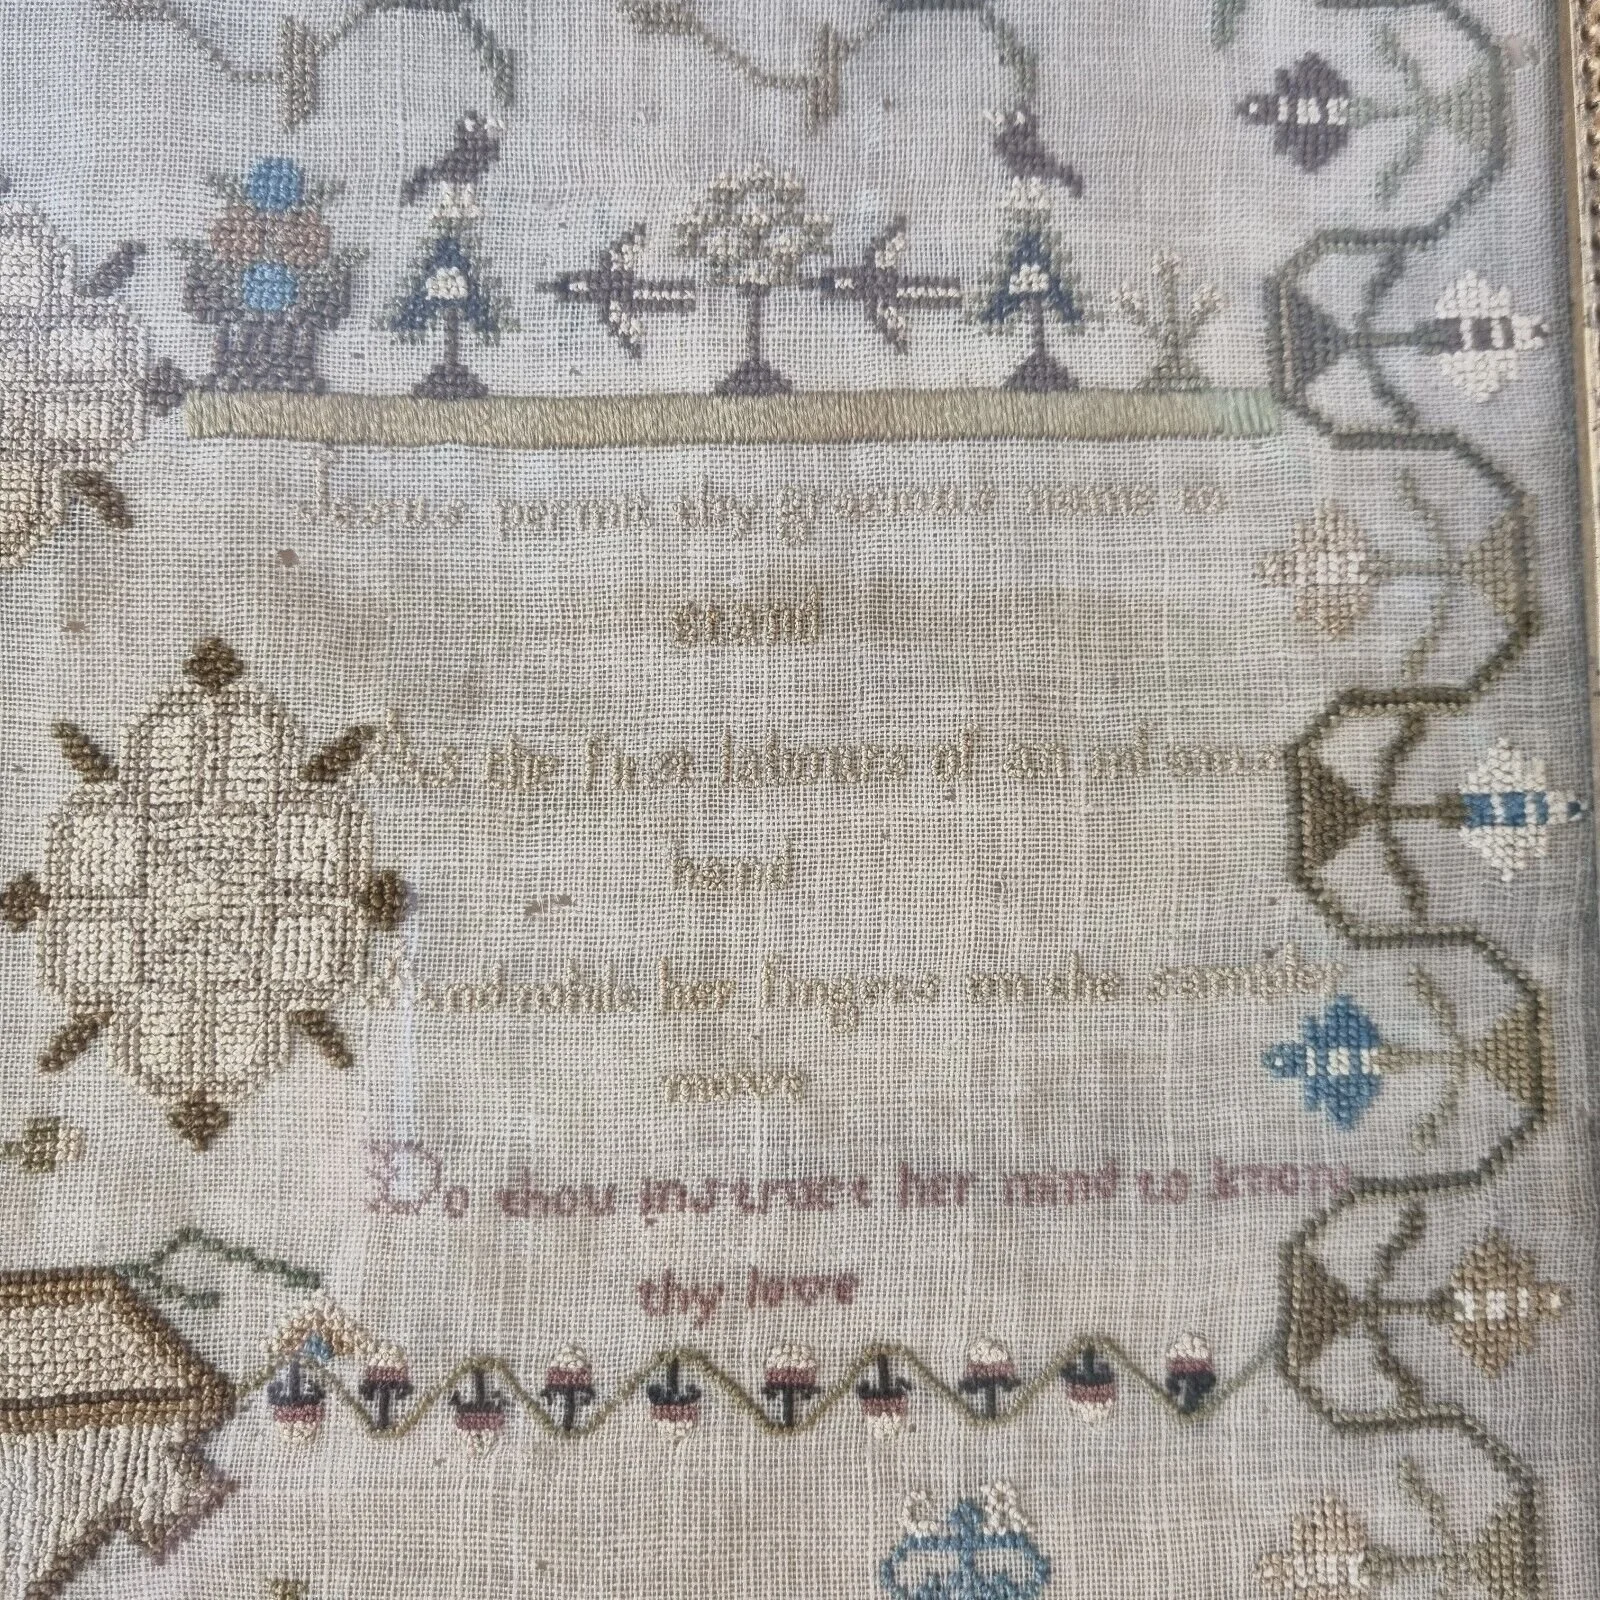 Jesus permit thy gracious name to
stand
As the first labours of an infants
hand
And while her fingers on the sampler
move
Do thou instruct her mind to know
thy love